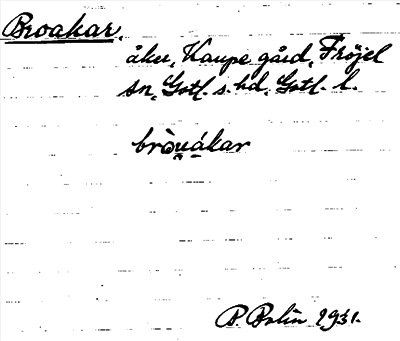 Broakar,
åker, Kaupe gård, Fröjel
sn, Gotl. s. hd, Gotl. l.
bròu̯ákar
P. Bolin 1931.